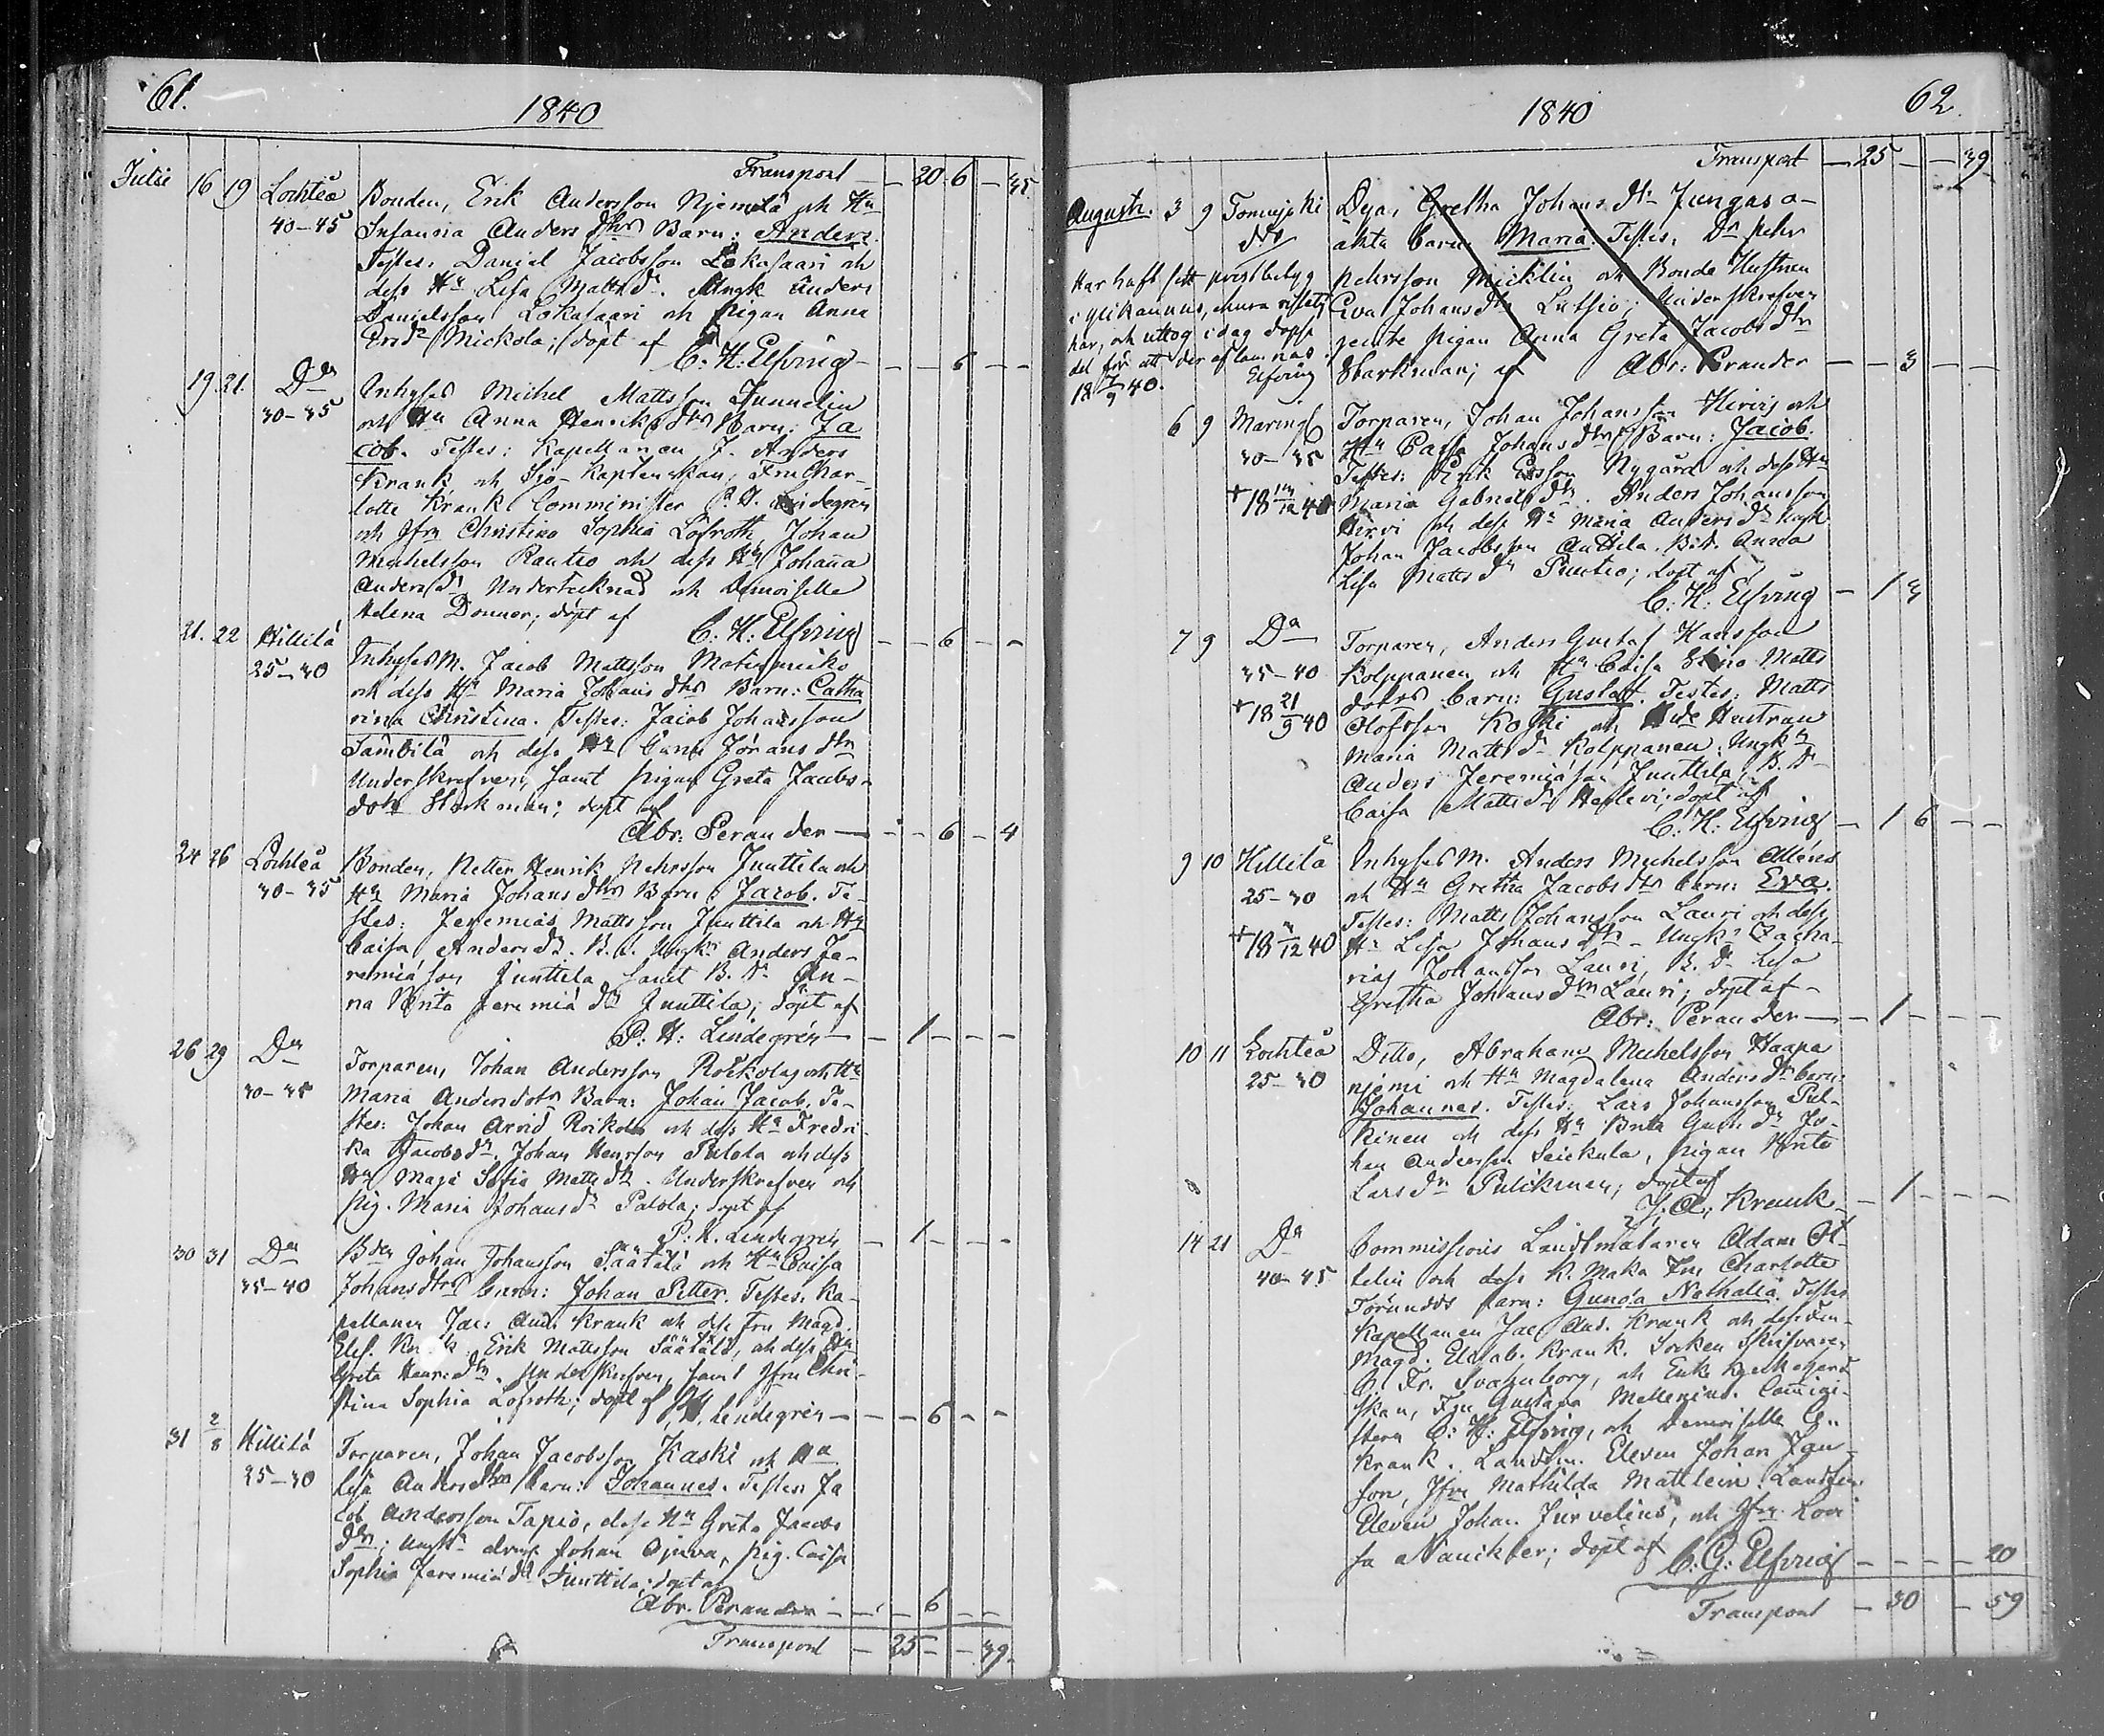 61.
1840
Transport — 20 6 — 35
Julii 16 19 Lochteå Bonden, Erik Andersson Njemelä och Hu
40-45 Susanna Anders dtrs Barn: Anders.
Testes: Daniel Jacobsson Lokasaari och
dess Hu Lisa Matts dr. Ungk Anders
Danielsson Lokasaari och pigan Anna
Mickola; döpt af
C. H. Elfving — — 6 — —
19 21. Do Inhyses Michel Mattsson Junnelin
30-35 och Hu Anna Henriks dtrs Barn: Ja
cob. Testes: Kapellanen J. Anders
Krank och Sjö-Kaptenskan, Fru Char-
lotte Krank Comminister P. H. Lindegren
och Jfru Christina Sophia Löfroth, Johan
Michelsson Rautio och dess Hu Johanna
Anders dr Undertecknad och Demoiselle
Helena Donner; döpt af
C. H. Elfving — — 6 — —
21. 22 Hillilä Inhyses M. Jacob Mattsson
25-30 och dess Hu Maria Johans dtrs Barn: Catha
rina Christina. Testes: Jacob Johansson
Sämbilä och dess Hu Jörans dtr
Underskrefven, samt pigan Greta Jacobs-
dotr Starkman; döpt af
Abr. Perander — — 6 — 4
24 26 Lochteå Bonden, Petter Henrik Pehrsson Junttila och
30-35 Hu Maria Johans dtrs Barn: Jacob. Te-
stes: Jeremias Mattsson Junttila och Hu
Caisa Anders dr. Ungk: Anders Je-
remiasson Junttila samt B. Dr An-
na Brita Jeremiä dr Junttila; döpt af
P. H. Lindegrén — — 1 — — —
26 29 Do Torparen, Johan Andersson Roikola och Hu
30-35 Maria Andersdotrs Barn: Johan Jacob. Te-
stes: Johan Arvid Roikola och dess Hu Fredri-
ka Jacobs dr. Johan Henrsson Palola och dess
Hu Maja Sofia Matts dr. Underskrefven och
Pig. Maria Johans dr Palola; döpt af
P. H. Lindegrén — 1 — — —
30 31 Do Bden Johan Johansson Säätälä och Hu Caisa
35-40 Johansdtrs Barn: Johan Petter. Testes: Ka-
pellanen Jac: And: Krank och dess Fru Magd.
Elis. Krank. Erik Mattsson Säätälä, och dess Hu
Greta Henrs dtr. Underskrefven, samt Jfru Chri-
stina Sophia Löfroth; döpt af P. H. Lindegrén — — 6 — —
31 2/8 Hillilä Torparen, Johan Jacobsson Kaski och Hu
25-30 Lisa Anders dtrs barn: Johannes. Testes: Ja
cob Andersson Tapio, dess Hu Greta Jacobs
dtr; Ungk: Johan Ojuva, pig. Caisa
Sophia Jeremiä dr Junttila; döpt af
Abr. Perander — — 6 — —
Transport — 25 — — 39
1840 62.
Transport — 25 — — 39
Augusti. 3 9 Tomujoki Deja, Gretha Johans dtr Jungas o-
äkta barn Maria. Testes: Dr Pehr
Har haft sitt prestbetyg Pehrsson Micklin och Bonde Hustrun
i Ylikannus, ehuru vistats Eva Johansdtr Lutsio; Underskrefven
här, och uttog idag dopse pente pigan Anna Greta Jacobs dtr
del för att der aflemnas Starkman; af Abr: Perander — — 3 — —
18 7/9 40. Elfving
6 9 Maringais Torparen, Johan Johansson Hirvis och
30-35 Hu Caisa Johans dtrs Barn: Jacob.
Testes: Erik Ersson Nygård och dess Hu
+18 /12 40 Maria Gabriels dr. Anders Johansson
Hirvi och dess Hu Maria Anders dr Ungk
Johan Jacobsson Anttila. B. dr. Anna
Lisa Matts dr Puutio; döpt af
C. H. Elfving — 1 3
7 9 Do Torparen, Anders Gustaf Hansson
35-40 Kolppanen och Hu Caisa Stina Matts
dotrs barn: Gustaf. Testes: Matts
+18 21/9 40 Olofsson Koski och Hustrun
Maria Matts dr Kolppanen; Ungk
Anders Jeremiasson Junttila, B. Dr
Caisa Matts dr; döpt af
C. H. Elfving — 1 6 — —
9 10 Hillilä Inhyses M. Anders Michelsson Alléns
25-30 och Hu Gretha Jacobs dtrs barn: Eva.
Testes: Matts Johansson Lauri och dess
+18 /12 40 Hu Lisa Johans dtr. Ungk: Zacha-
rias Johansson Lauri, B. Dr Lisa
Gretha Johans dtr Lauri; döpt af
Abr: Perander — — 1 — — —
10 11 Lochteå Ditto, Abraham Michelsson Haapa
25-30 njemi och Hu Magdalena Anders drs barn:
Johannes. Testes: Lars Johansson Pul-
kinen och dess Hu Brita Gust. dr Jo-
han Andersson Seickula, pigan Brita
Lars dr Pulkinen; döpt af
J. A. Krank — 1 — — —
14 21 Do Commissions Landtmätaren Adam
40-45 och dess K. Maka Fru Charlotte
barn: Gunda Nathalia. Testes
Kapellanen Jac And. Krank och dess Fru
Magd. Elisab. Krank. Socken Skrifvaren
C. Fr. Svahnborg, och Enke Kyrkoherd
skan, Fru Gustava Mellenius. Commini-
stern C. H. Elfving, och Demoiselle C.
Krank. Landtm. Eleven Johan Jan-
son, Jfru Mathilda Mattlein. Landtm.
Eleven Johan Jurvelius, och Jfru Lovi
sa Nanickler; döpt af C. G. Elfving — — — — 20
Transport — 30 — 59